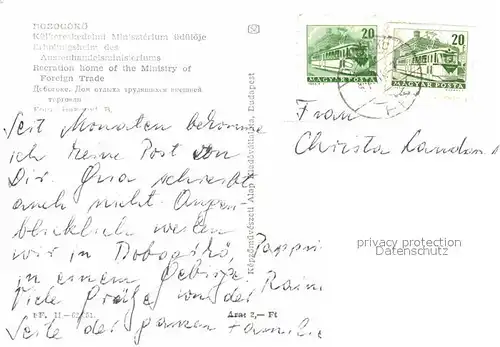 DOBOGÓKŐ
Külkereskedelmi Minisztérium üdülője
Erholungsheim des
Aussenhandelsministeriums
Recration home of the Ministry of
Foreign Trade
Добогокё. Дом отдыха трудящихся внешней
торговли
Seit Monaten bekomme
ich keine Post von
Dir. Oma schreibt
auch nicht. Augen-
blicklich weilen
wir in Dobogókő,
in einem Gebirge.
Viele Grüße von der
Seite der ganzen Familie
Képzőművészeti Alap Kiadóvállalata, Budapest
20
MAGYAR POSTA
20
MAGYAR POSTA
Frau
Christa
privacy protection
Datenschutz
Ára: 2,— Ft